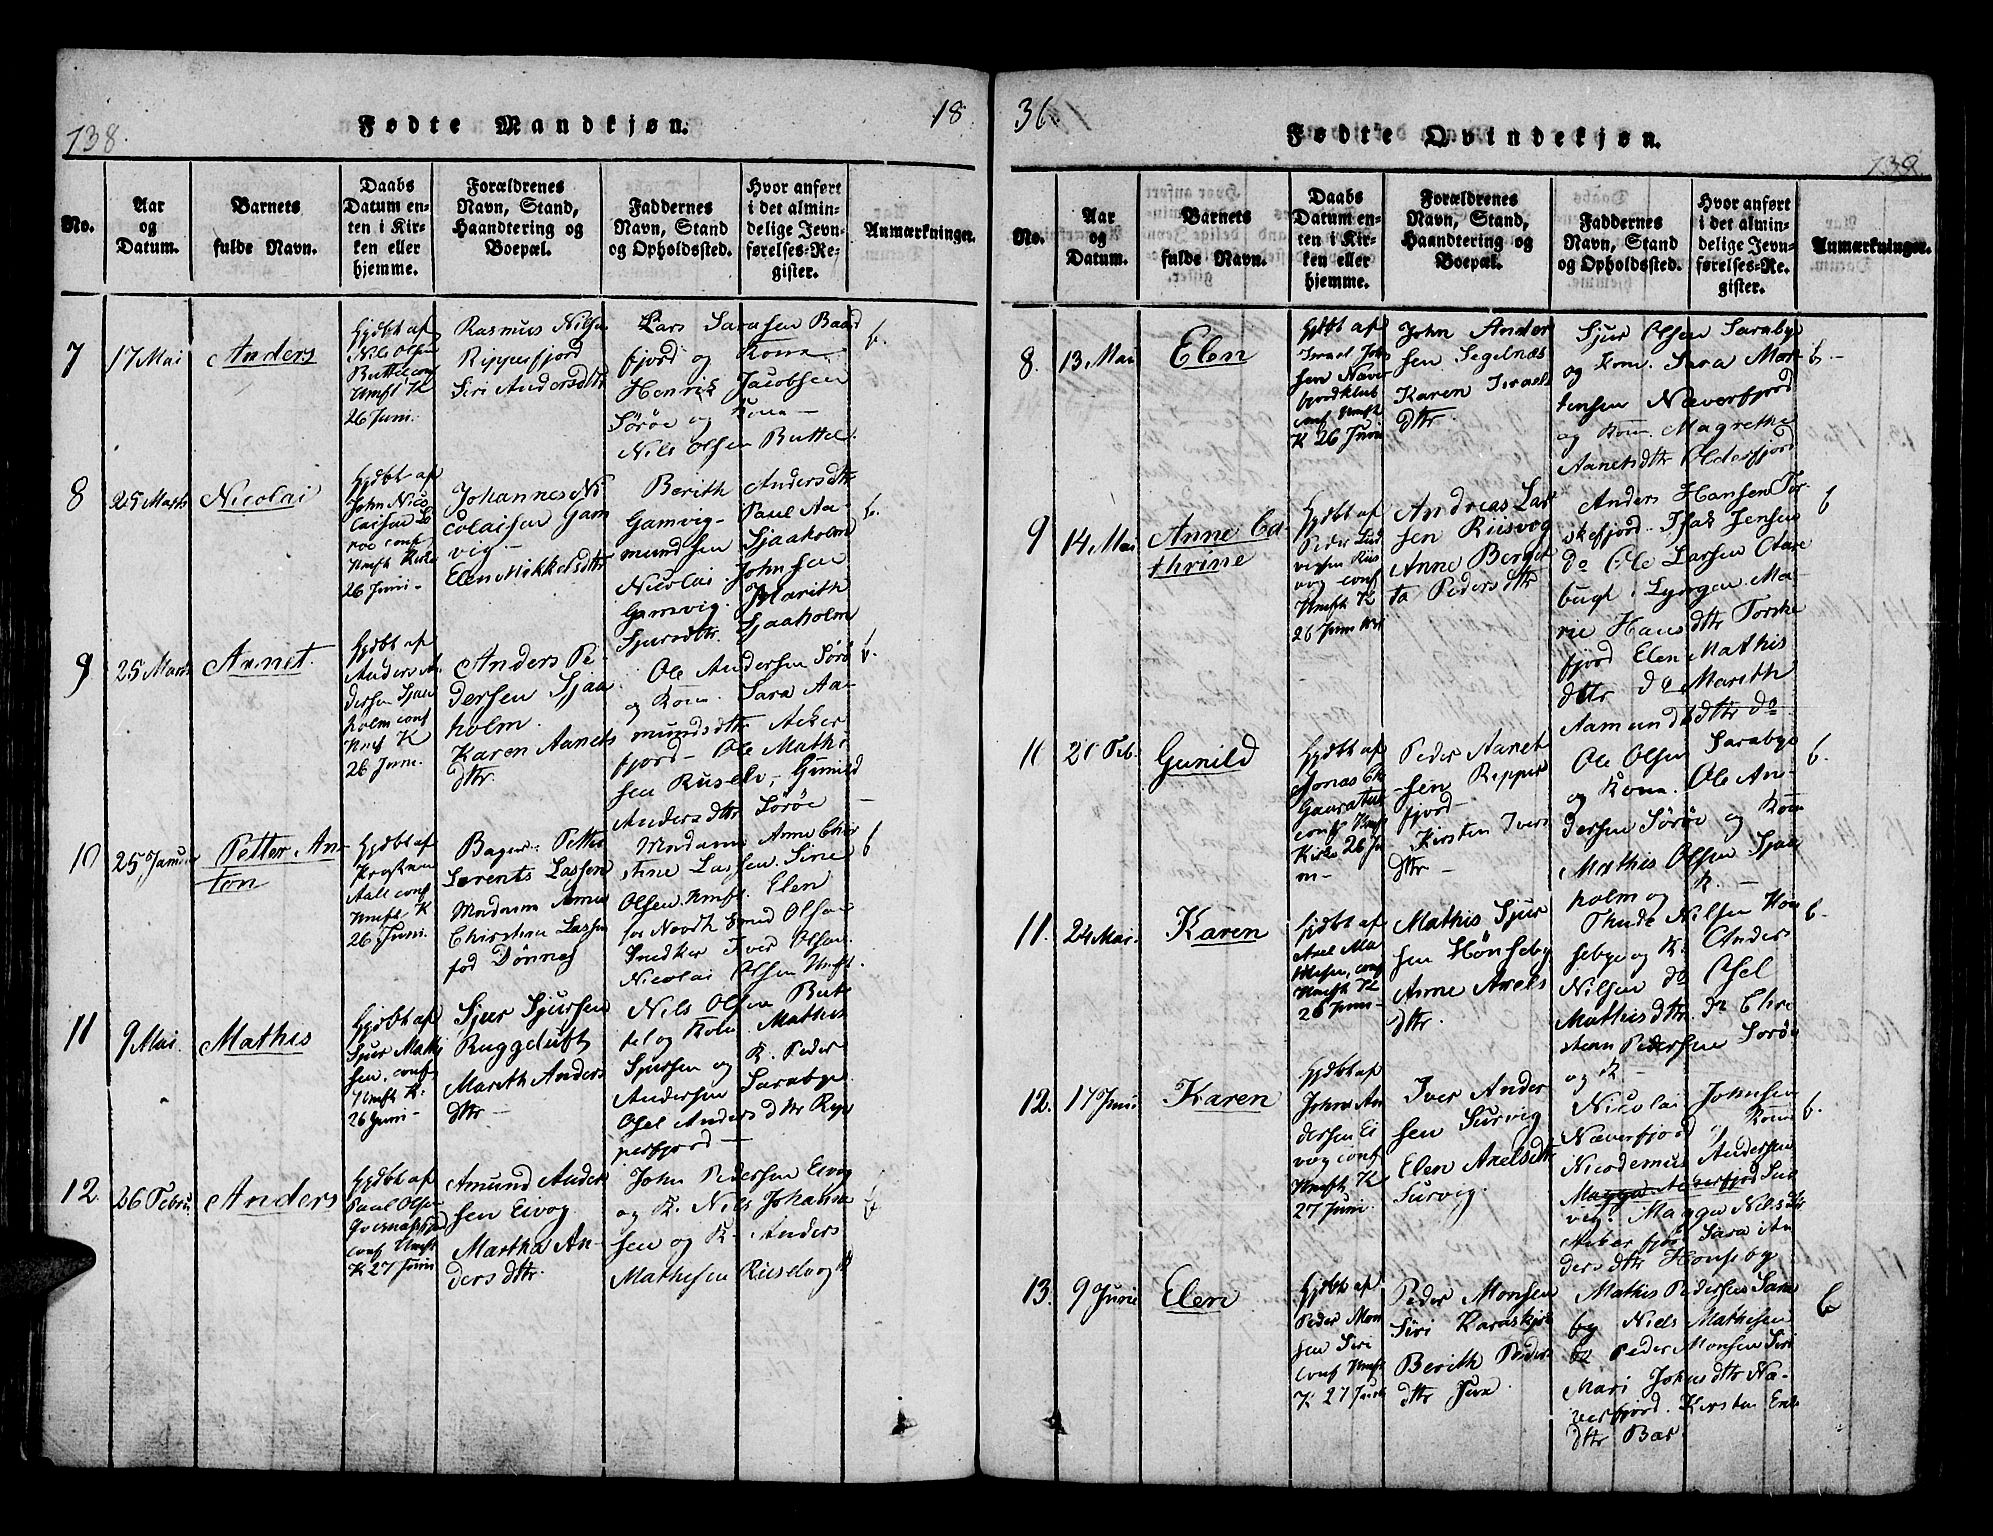 138.
Fødte Mandkjøn.
18
No.
Aar
og
Datum.
Barnets
fulde Navn.
Daabs
Datum en-
ten i Kir-
ken eller
hjemme.
Forældrenes
Navn, Stand,
Haandtering og
Boepæl.
Faddernes
Navn, Stand
og Opholdssted.
Hvor anført
i det almin-
delige Jevn-
førelses-Re-
gister.
Anmærkninger.
7
17 Mai
Anders
Hjdbt af
Nils Olsen
Buttel conf
Hmft K
26 Juni.
Rasmus Nilsen
Rippefjord
Siri Andersdttr
Lars Sarasen Baad
fjord og Kona
Henrik Jacobsen
Sörøe og Kona
Nils Olsen Buttel.
b.
8
25 Marts
Nicolai
Hjdbt af
John Nico
laisen
conf
Hmft Kirke
26 Juni
Johannes Ni
colaisen Gam
vig
Elen Mikkelsdttr
Berith Andersdttr
Gamvig Paul Aa-
mundsen Sjaaholm
Nicolai Johnsen
Gamvig. og Marith
Sjursdttr. Sjaaholm
b.
9
25 Marts
Annet.
Hjdbt af
Anders An
dersen Sjaa
holm conf
Hmft K
26 Juni.
Anders Pe-
dersen Sjaa
holm.
Karen Aanets
dttr.
Ole Andersen Sörø
og Kona. Sara Aa-
mundsdttr Acker
fjord Ole Mathi
sen Russelv, Gunild
Andersdttr Sörøe
b.
10
25 Januar
Petter An-
ton
Hjdbt af
conf
Hmft K
26 Juni.
Petter
Lorents Lassen
Madame Anne
Christine Lassen
fød Dönnes
Madame Anne Chir
stine Lassen. Sine
Olsen Hmft. Elen
Olsen
Snedker Iver Olsen
Nicolai Olsen Hmft.
b
11
9 Mai
Mathis
Hjdbt af
Sjur Mathi
sen, conf
Hmft K.
26 Juni
Sjur Sjursen
Ruggeluft
Marith Anders
dttr
Nils Olsen But
tel og Kona Mathis
Sjursen og K. Peder
Andersen Sarabye
Osel Andersdttr Rep
perfjord
12
26 Febru
Anders
Hjdbt af
Paul Olsen
conf Hmft
K 27 Juni
Amund Ander
sen Eivog.
Martha An-
dersdttr.
John Pedersen Eivog
og K. Nils Johanne
sen og K. Anders
Mathisen Russelvog
b
36
Fødte Qvindekjøn.
139
No.
Aar
og
Datum.
Barnets
fulde Navn.
Daabs
Datum en-
ten i Kir-
ken eller
hjemme.
Forældrenes
Navn, Stand,
Haandtering og
Boepæl.
Faddernes
Navn, Stand
og Opholdssted.
Hvor anført
i det almin-
delige Jevn-
førelses-Re-
gister.
Anmærkninger.
8.
13 Mai
Elen
Hjdbt af
Israel John
sen Naver
fjordklub
conf Hmft
K 26 Juni
John Ander
sen Segelnæs
Karen Israels
dttr.
Sjur Olsen Sarabye
og Kon. Sara Mor-
tensen Næverfjord
og Kon. Magrethe
Aanetsdttr Olderfjord
b.
9
14 Mai
Anne Ca
thrine
Hjdbt af
Peder Lud
vigsen Riis
vog conf
Hmft K
26 Juni
Andreas Lar
sen Riisvog
Anne Berget
ta Pedersdttr
Anders Hansen Tor
skefjord. Isak Jensen
do Ole Larsen
Lyngen Ma-
rie Hansdttr Torske
fjord Elen Mathis
dttr do Marith
Aamundsdttr do
b
10
21 Feb.
Gunild
Hjdbt af
Jonas Ek
conf. Hmft
Kirke 26 Ju
ni
Peder Aanet
sen Repper
fjord
Kirsten Ivers
dttr
Ole Olsen Sarabye
og Kona. Ole An-
dersen Sörøe og Kona
Mathis Olsen Sjaa
holm og K.
b.
11.
24 Mai.
Karen
Hjdbt af
Axel Ma
thisen, conf
Hmft K
26 Juni
Mathis Sjur
sen Hönseby
Anne Axels
dttr.
Nilsen Hön
sebye og K. Anders
Nilsen do Osel
Mathisdttr do Chri
stian Pedersen Sorö
og K
b.
12.
17 Juni
Karen
Hjdbt af
John An
dersen Ei
vog conf
Hmft K
27 Juni.
Iver Ander
sen Survig
Elen Axelsdttr
Survig.
Nicolai Johnsen
Næverfjord og Kona
Nicodemus Andersen
Magga Akkerfjord Sur
vig. Magga Nilsdttr
Akkerfjor Sara An
dersdttr Honseby
b.
13.
9 Junie
Elen
Hjdbt af
Peder Mon
sen Siri
conf Hmft
K 27 Juni
Peder Monsen
Siri
Berith Peder
dttr
Mathis Pedersen Sara
by Niels Mathisen
Peder Monsen Siri
Mari Johnsdttr Næ-
verfjord. Kirsten
dttr
b